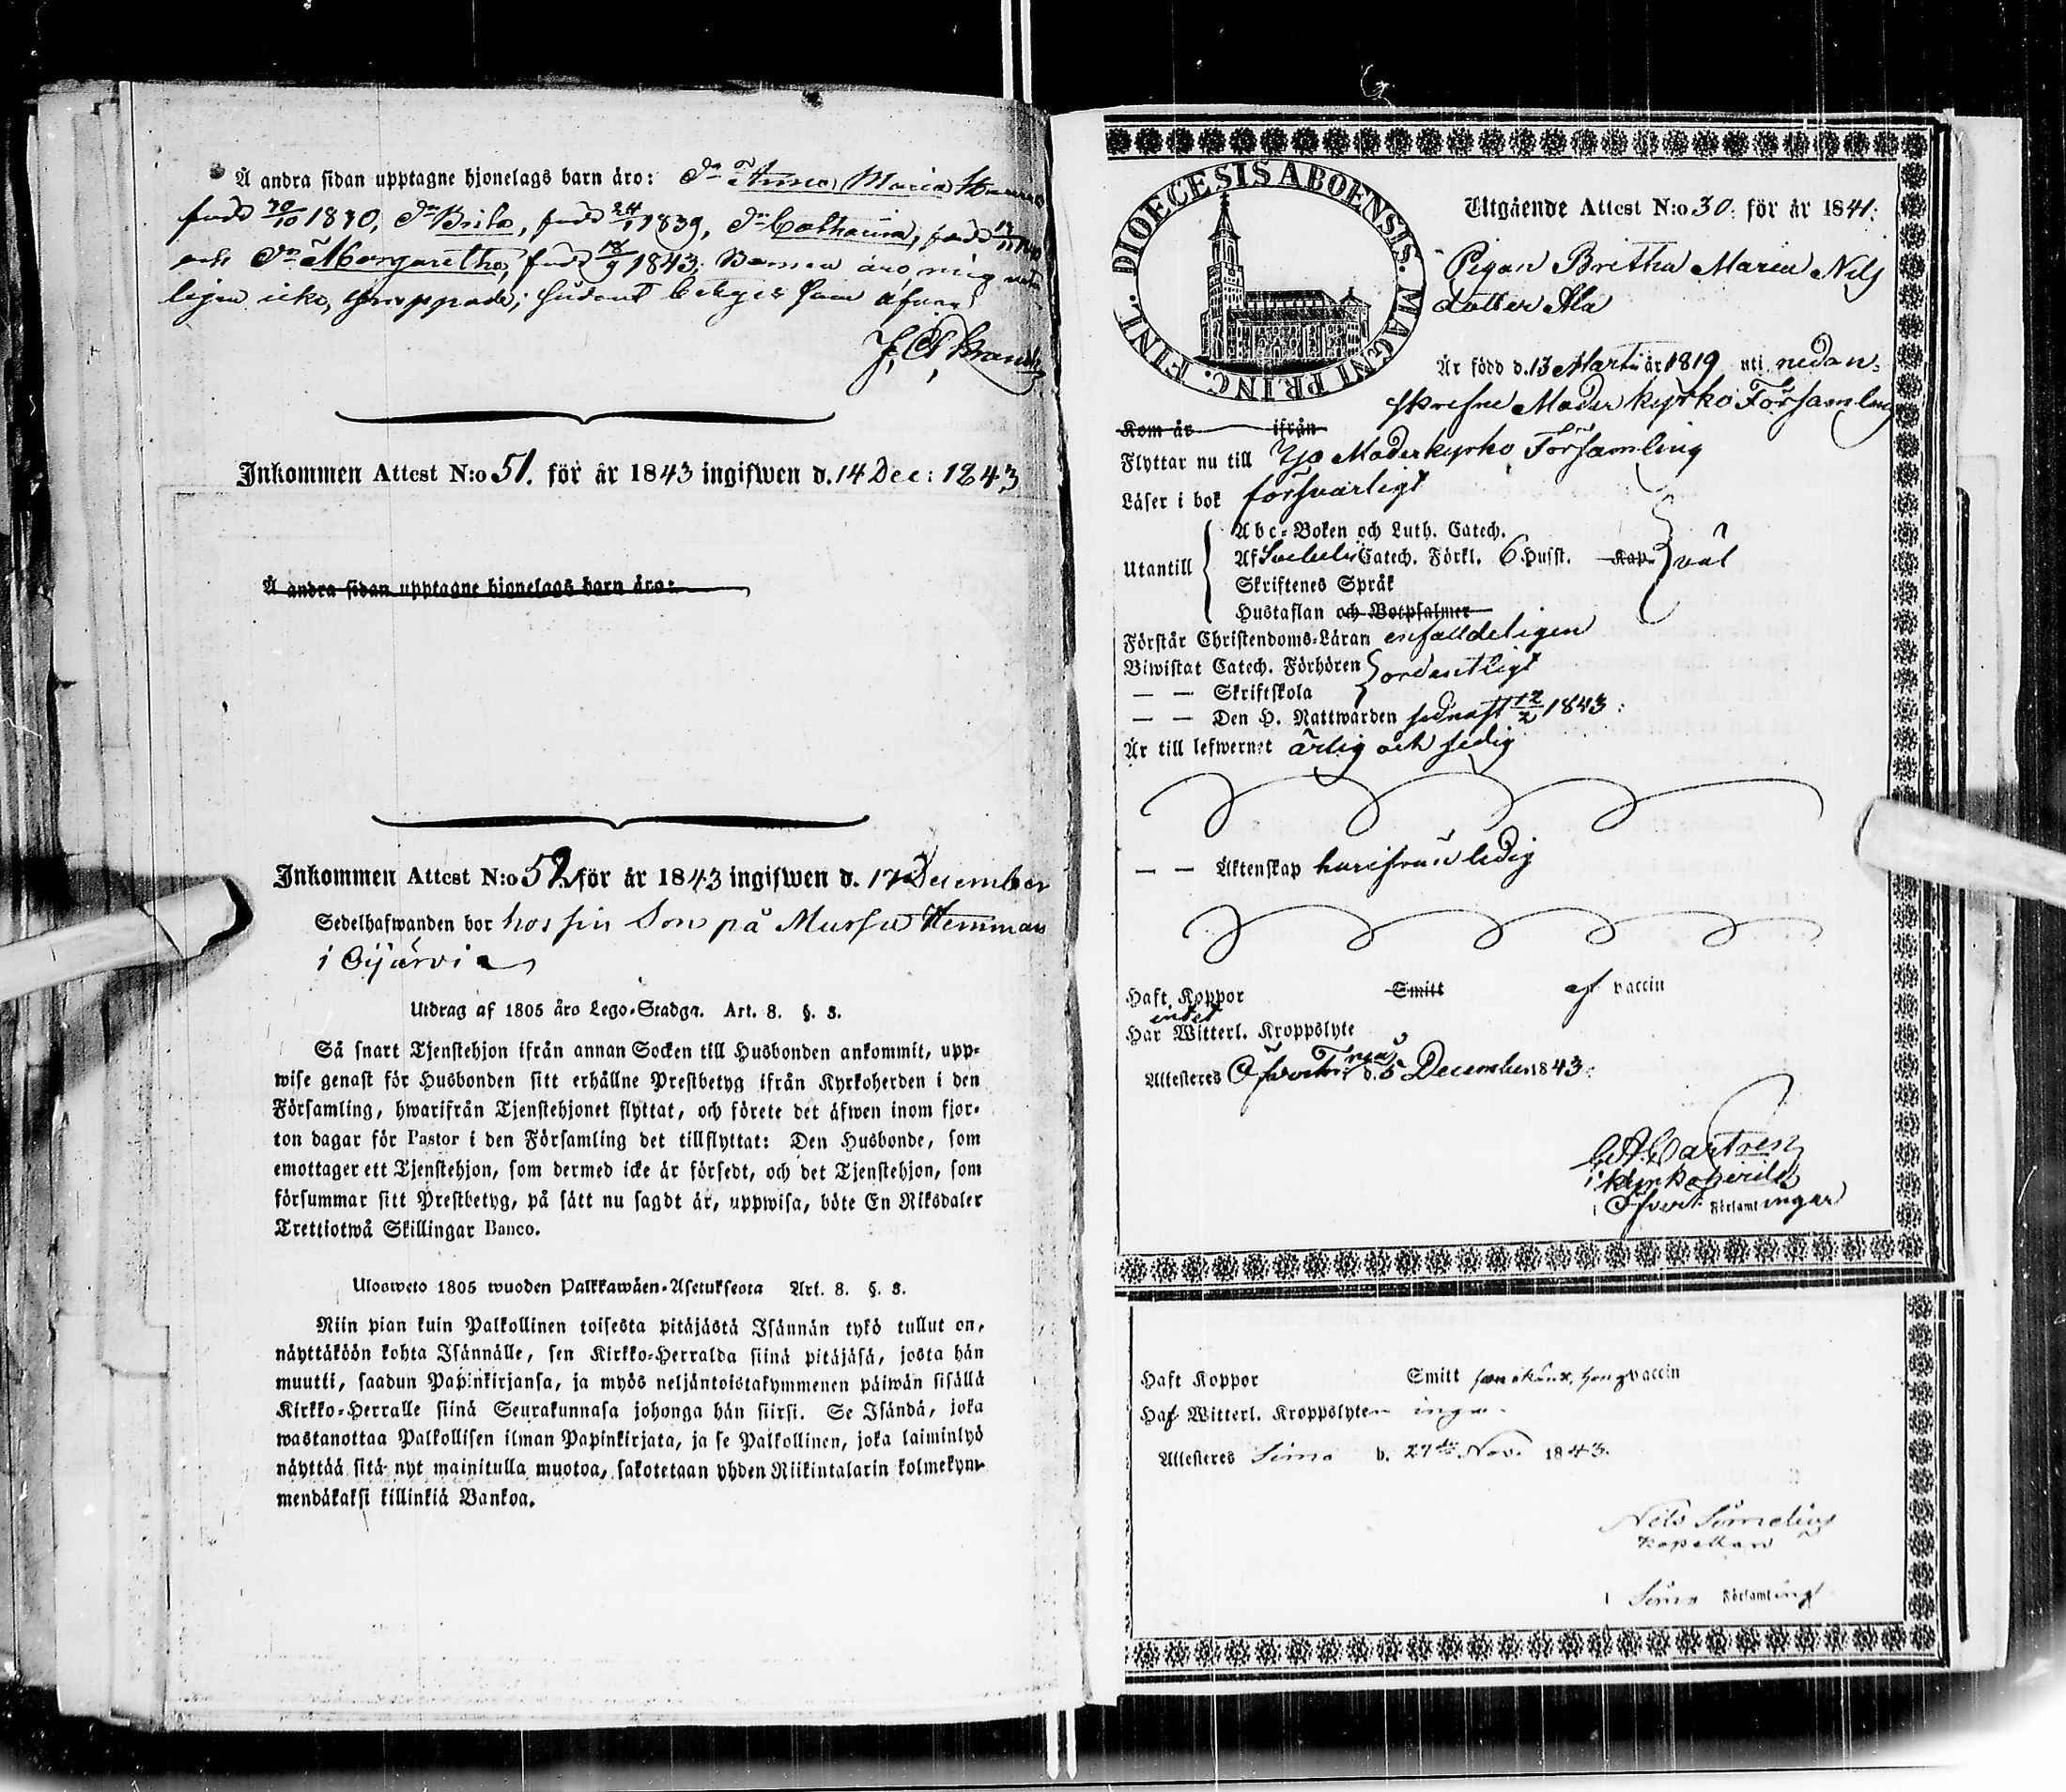 Å andra sidan upptagne hjonelags barn äro: Dr Anna Maria
född 30/10 1830, Dr Brita, född 24/1 1839, Dr Catharina, född
och Dr Margaretha, född 18/9 1843; Barnen äro mig
ligen icke
J. A.
Inkommen Attest N:o 51. för år 1843 ingifwen d. 14 Dec: 1843
Å andra sidan upptagne hjonelags barn äro:
Inkommen Attest N:o 52 för år 1843 ingifwen d. 17 December
Sedelhafwanden bor hos sin Son på Mursu Hemman
i Oijärvi
Utdrag af 1805 åro Lego-Stadga. Art. 8. §. 3.
Så snart Tjenstehjon ifrån annan Socken till Husbonden ankommit, upp-
wise genast för Husbonden sitt erhållne Prestbetyg ifrån Kyrkoherden i den
Församling, hwarifrån Tjenstehjonet flyttat, och förete det äfwen inom fjor-
ton dagar för Pastor i den Församling det tillflyttat: Den Husbonde, som
emottager ett Tjenstehjon, som dermed icke är försedt, och det Tjenstehjon, som
försummar sitt Prestbetyg, på sätt nu sagdt är, uppwisa, böte En Riksdaler
Trettiotwå Skillingar Banco.
Ulosweto 1805 wuoden Palkkawäen-Asetuksesta Art. 8. §. 3.
Niin pian kuin Palkollinen toisesta pitäjästä Isännän tykö tullut on,
näyttäköön kohta Isännälle, sen Kirkko-Herralda siinä pitäjäsä, josta hän
muutti, saadun Papinkirjansa, ja myös neljäntoistakymmenen päiwän sisällä
Kirkko-Herralle siinä Seurakunnasa johonga hän siirsi. Se Isändä, joka
wastanottaa Palkollisen ilman Papinkirjata, ja se Palkollinen, joka laiminlyö
näyttää sitä nyt mainitulla muotoa, sakotetaan yhden Riikintalarin kolmekym-
mendäkaksi killinkiä Bankoa.
DIOECESIS ABOENSIS. MAGNI PRINC. FINL.
Utgående Attest N:o 30: för år 1841:
Pigan Britha Maria Nils
dotter Ala
Är född d. 13 Martii år 1819 uti nedan-
skrefne Moder kyrko Församling
Kom år ifrån
Flyttar nu till Ijo Moderkyrko Församling
Läser i bok försvarligt
Abc-Boken och Luth. Catech.
Utantill Af Svebelii Catech. Förkl. 6 Husst. Kap. väl
Skriftenes Språk
Hustaflan och Botpsalmer
Förstår Christendoms-Läran enfalldeligen
Biwistat Catech. Förhören ordentligt
— — Skriftskola
— — Den H. Nattwarden sednast 12/2 1843:
Är till lefwernet ärlig och sedig
— — Äktenskap härifrån ledig
Haft Koppor Smitt af vaccin
intet
Har Witterl. Kroppslyte
Attesteras Öfvertorneå d. 5 December 1843:
Castren
Kyrkoherde
i Öfvert. Församlingar
Haft Koppor Smitt vaccin
Haf Witterl. Kroppslyten inga.
Attesteras Simo d. 27de Nov. 1843.
Nils Simelius
Kapellan
i Simo Församling